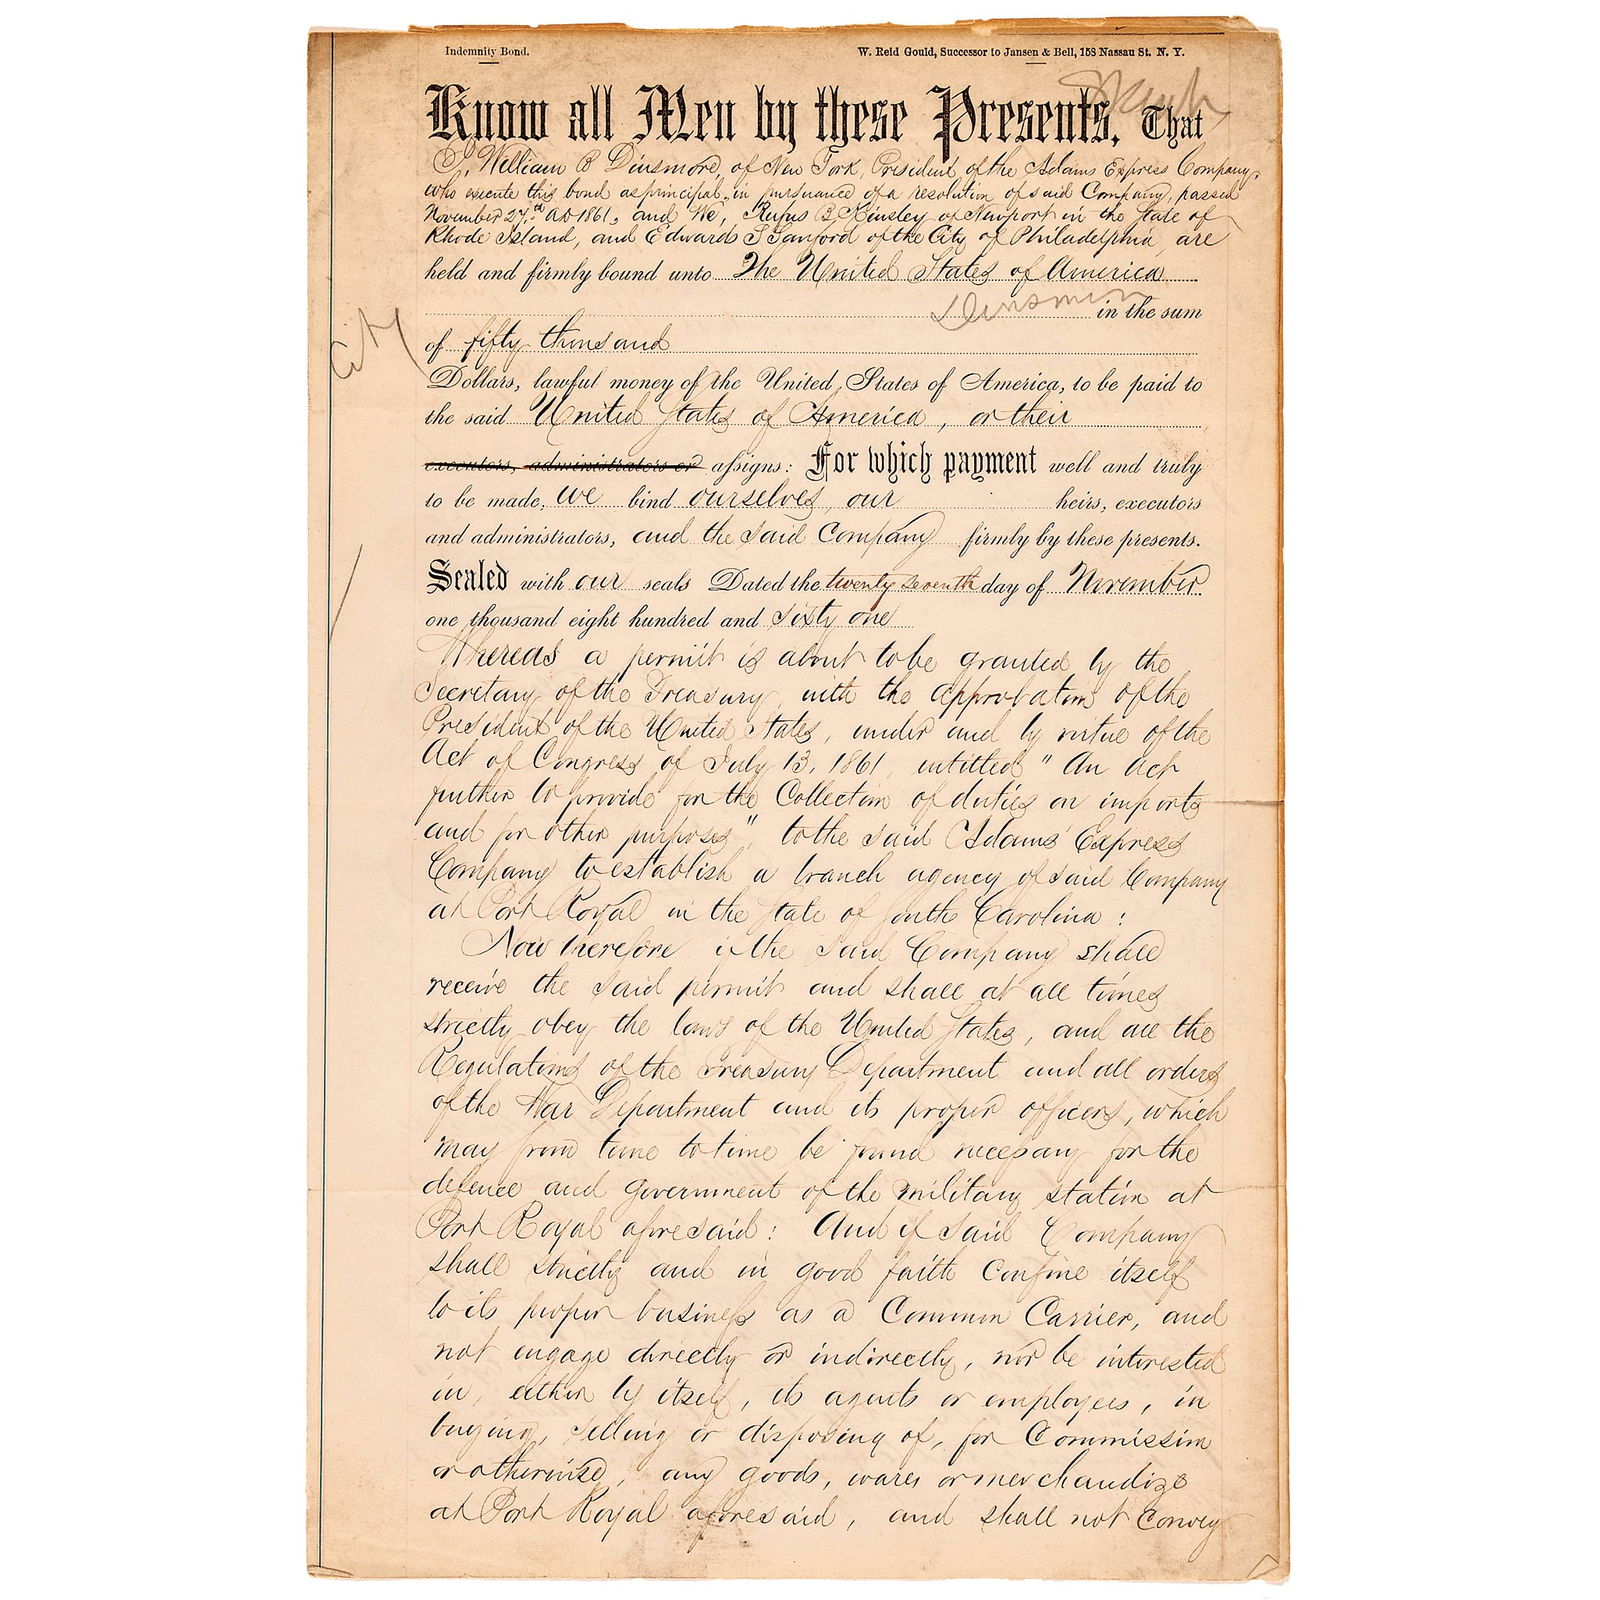 Indemnity Bond.
W. Reid Gould, Successor to Jansen & Bell, 158 Nassau St. N. Y.
Know all Men by these Presents, That
I, William B Dinsmore, of New York, President of the Adams Express Company,
who execute this bond as principal, in pursuance of a resolution of said Company, passed
November 27th AD 1861, and We, Rufus B. Kinsley of Newport in the State of
Rhode Island, and Edwards S Sanford of the City of Philadelphia, are
held and firmly bound unto The United States of America
Dinsmore
in the sum
of fifty thousand
Dollars, lawful money of the United States of America, to be paid to
the said United States of America, or their
executors, administrators or assigns: For which payment well and truly
to be made, we bind ourselves, our heirs, executors
and administrators, and the said Company firmly by these presents.
Sealed with our seals Dated the twenty seventh day of November
one thousand eight hundred and sixty one
Whereas a permit is about to be granted by the
Secretary of the Treasury, with the approbation of the
President of the United States, under and by virtue of the
Act of Congress of July 13, 1861, entitled "An Act
further to provide for the Collection of duties on imports
and for other purposes", to the said Adams' Express
Company to establish a branch agency of said Company
at Port Royal in the State of South Carolina:
Now therefore if the said Company shall
receive the said permit and shall at all times
strictly obey the laws of the United States, and all the
Regulations of the Treasury Department and all orders
of the War Department and its proper officers, which
may from time to time be found necessary for the
defence and government of the military station at
Port Royal aforesaid: And if said Company
shall strictly and in good faith confine itself
to its proper business as a Common Carrier, and
not engage directly or indirectly, nor be interested
in, either by itself, its agents or employees, in
buying, selling or disposing of, for Commission
or otherwise, any goods, wares or merchandize
at Port Royal aforesaid, and shall not convey